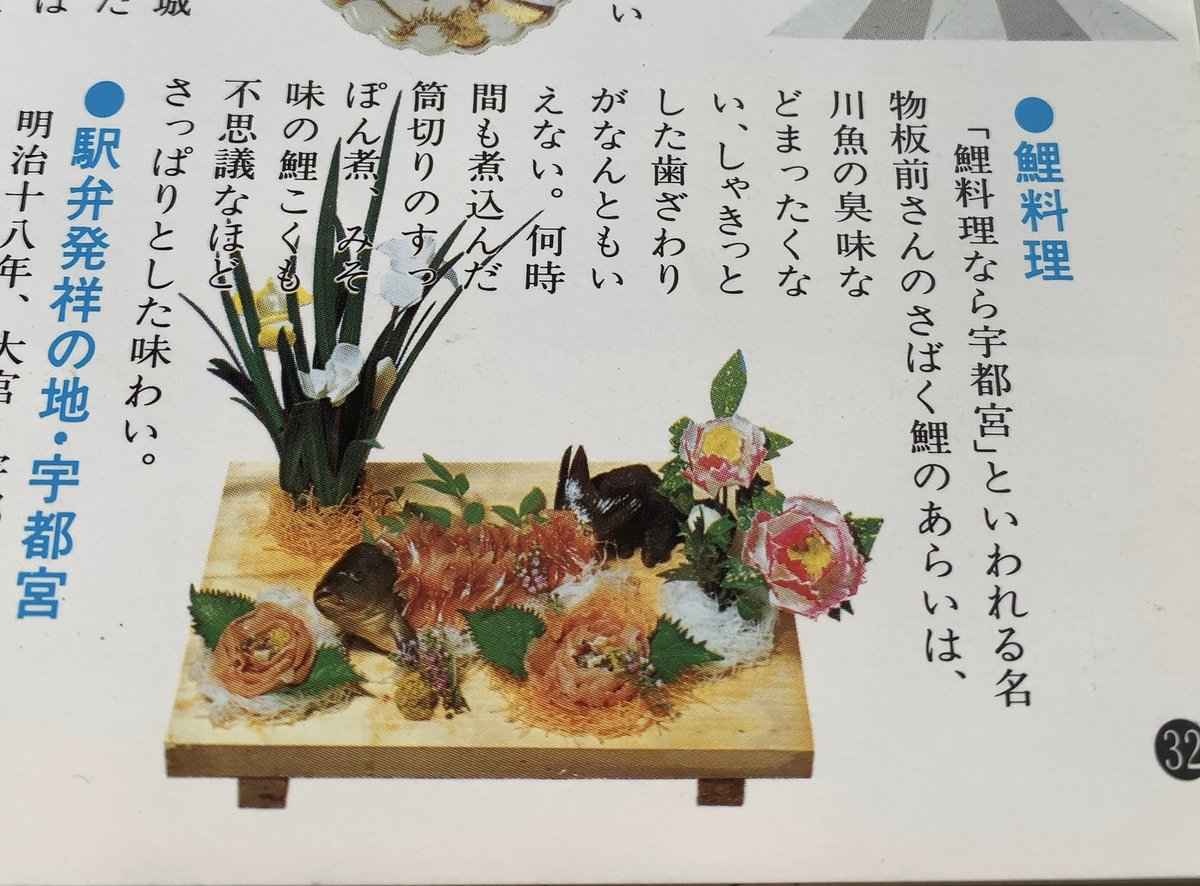 い
●鯉料理
「鯉料理なら宇都宮」といわれる名
物板前さんのさばく鯉のあらいは、
川魚の臭味な
どまったくな
い、しゃきっと
した歯ざわり
がなんともい
えない。何時
間も煮込んだ
筒切りのすっ
ぽん煮、みそ
味の鯉こくも
不思議なほど
さっぱりとした味わい。
●駅弁発祥の地・宇都宮
明治十八年、大宮
32